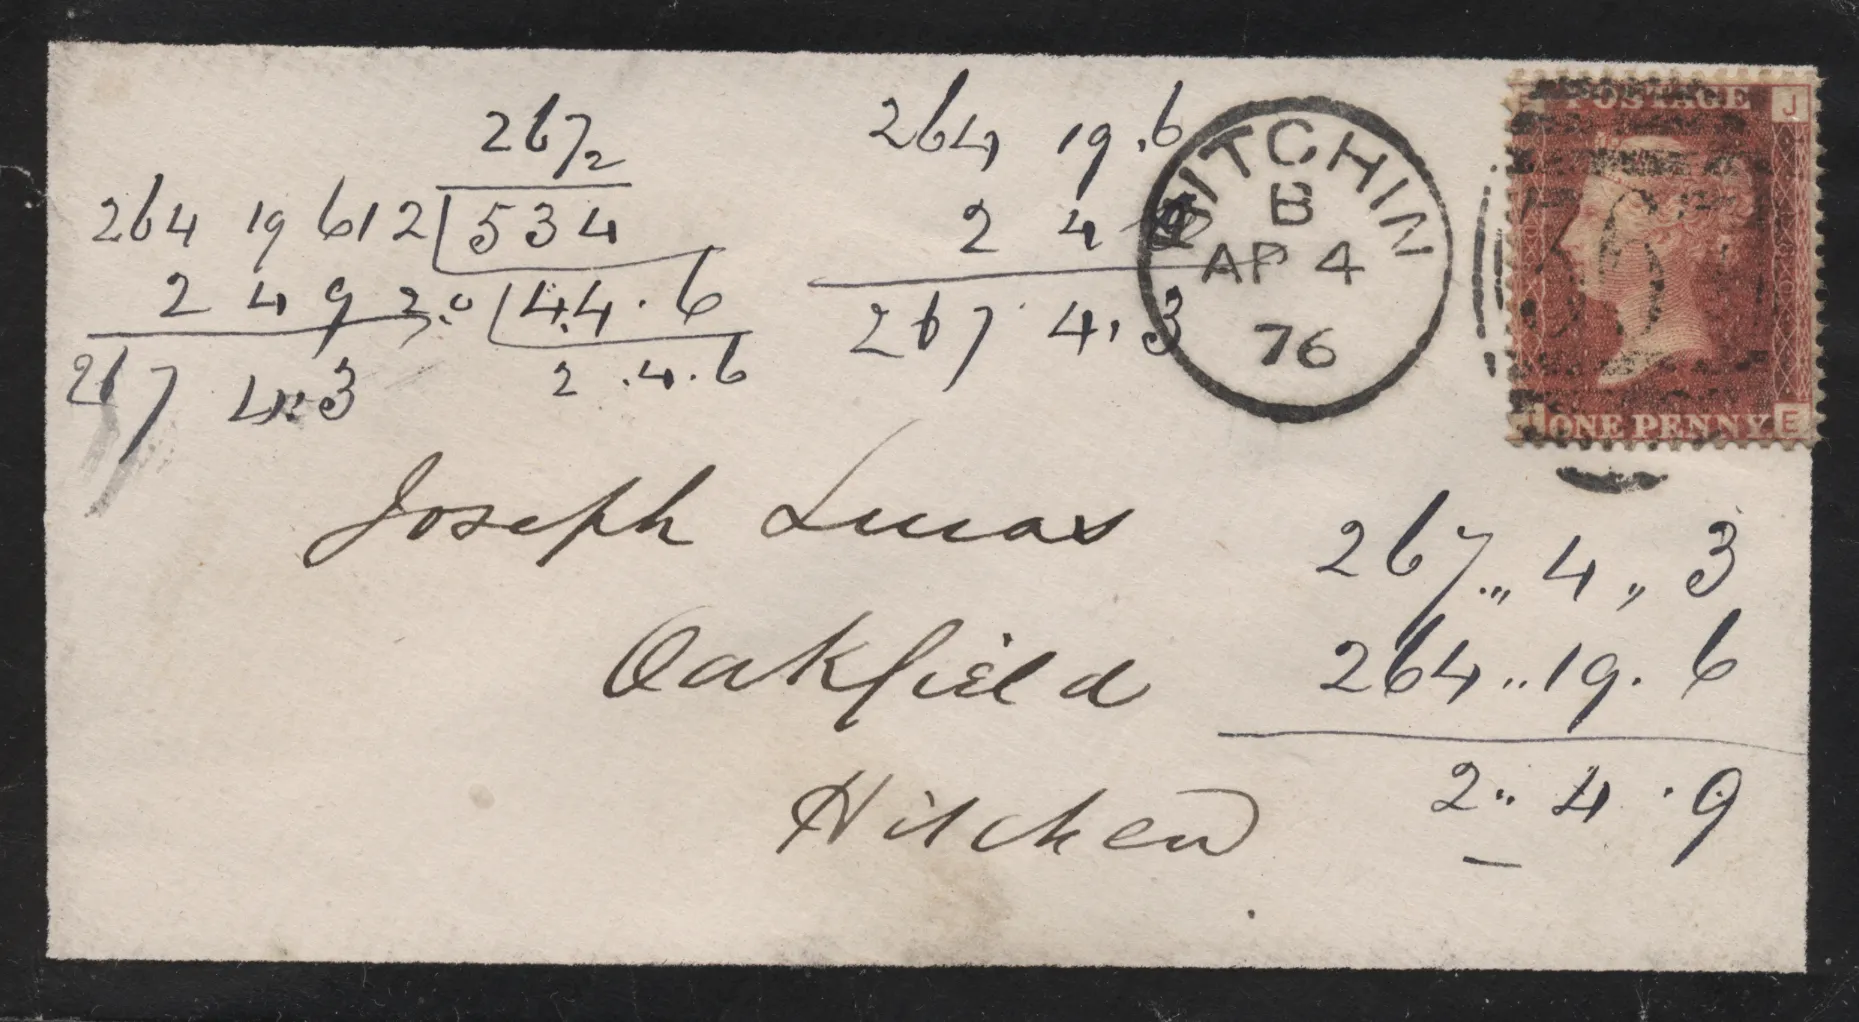 267
2
264 19 6 12 534
2 4 9 2.0 44.6
267 4:3 2.4.6
264 19.6
2 4
267 4.3
HITCHIN
B
AP 4
76
POSTAGE J
ONE PENNY E
Joseph Lucas
Oakfield
Hitchen
267 ,, 4 ,, 3
264 .. 19. 6
2 .. 4 . 9